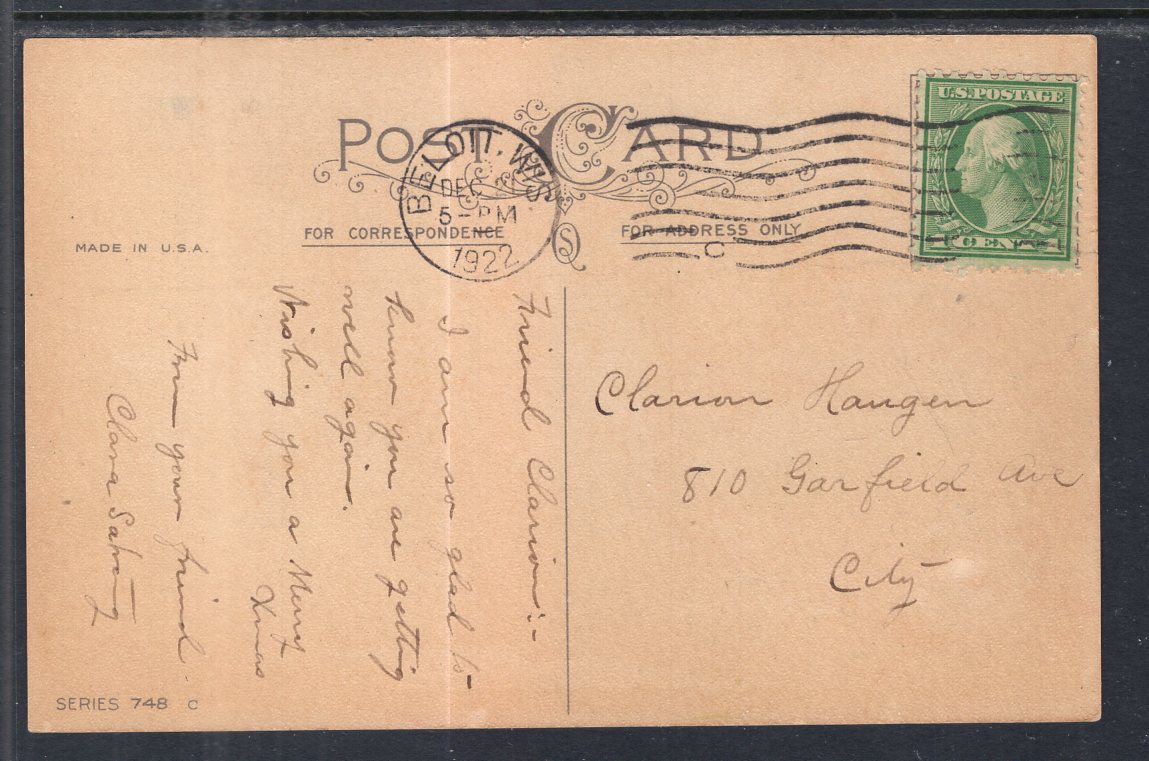 POST CARD
BELOIT, WIS.
DEC
5-PM
1922
C
U.S. POSTAGE
1 CENT 1
FOR CORRESPONDENCE
FOR ADDRESS ONLY
MADE IN U.S.A.
Friend Clarion:-
I am so glad to
know you are getting
well again.
Wishing you a Merry
Xmas
From your friend
Clara
Clarion Haugen
810 Garfield Ave
City
SERIES 748 C